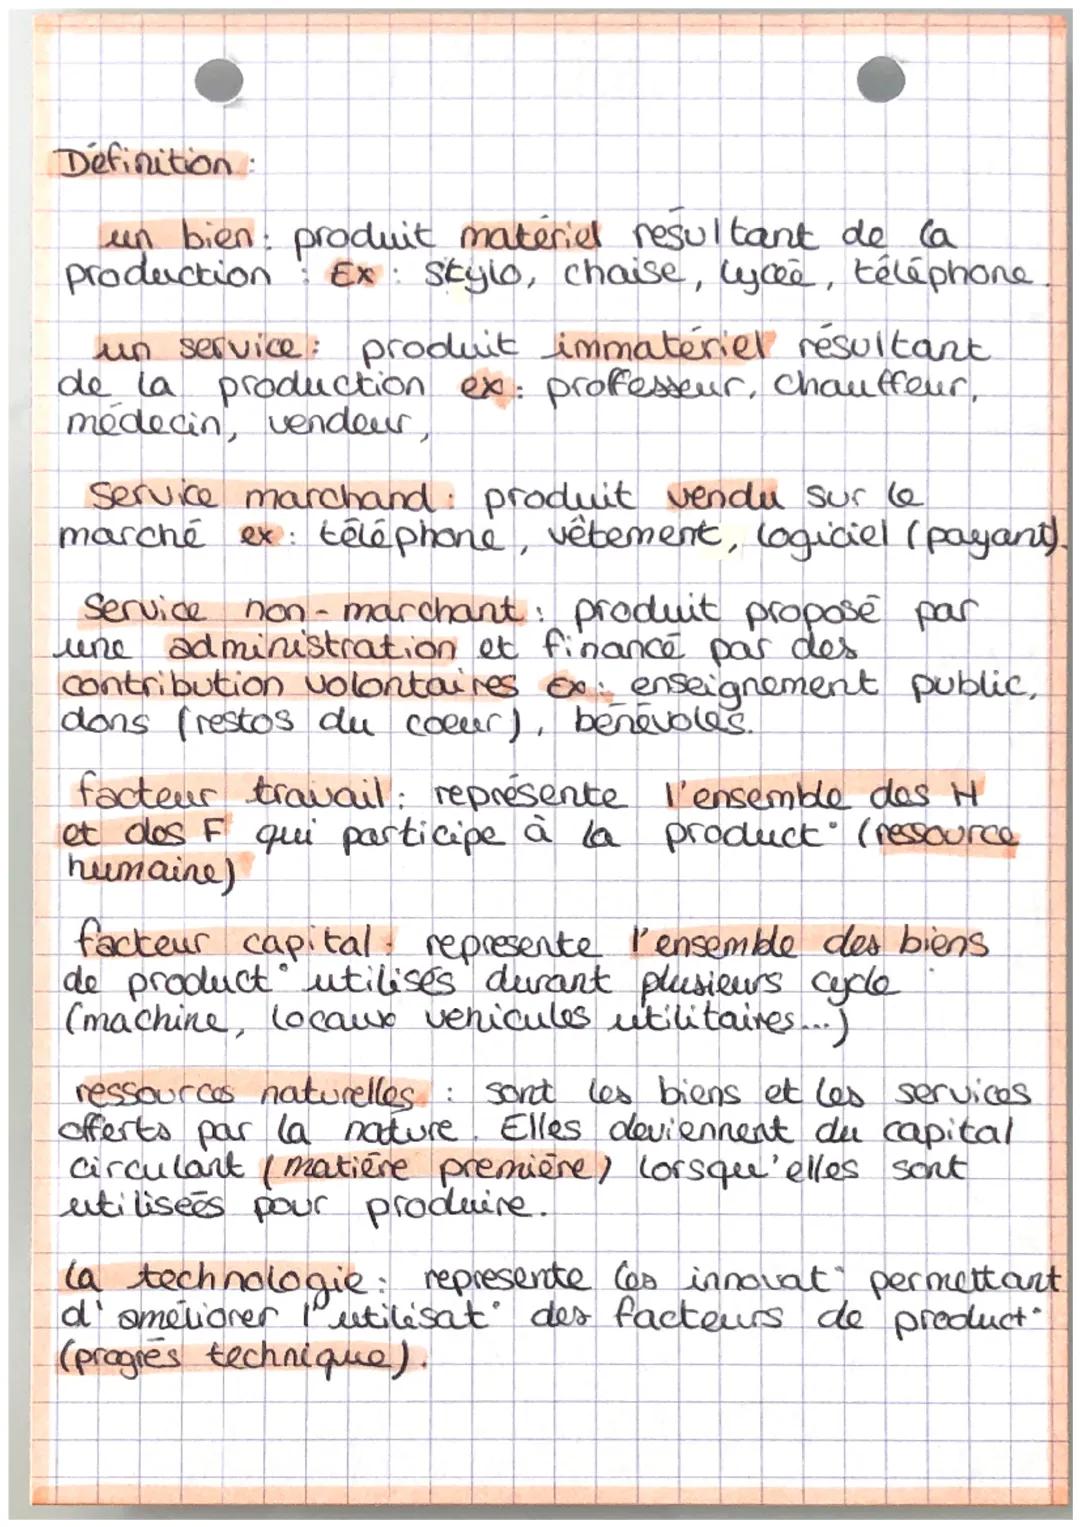 Définition :
un bien : produit matériel résultant de la
production : Ex : stylo, chaise, lycée, téléphone.
un service : produit immatériel résultant
de la production ex : professeur, chauffeur,
médecin, vendeur,
Service marchand : produit vendu sur le
marché ex : téléphone, vêtement, logiciel (payant).
Service non-marchant : produit proposé par
une administration et financé par des
contribution volontaires Ex : enseignement public,
dons (restos du coeur), bénévoles.
facteur travail : représente l'ensemble des H
et des F qui participe à la product° (ressource
humaine)
facteur capital : represente l'ensemble des biens
de product° utilisés durant plusieurs cycle
(machine, locaux vehicules utilitaires...)
ressources naturelles : sont les biens et les services
offerts par la nature. Elles deviennent du capital
circulant (matière première) lorsqu'elles sont
utilisées pour produire.
la technologie : represente les innovat° permettant
d'améliorer l'utilisat° des facteurs de product°
(progrès technique).